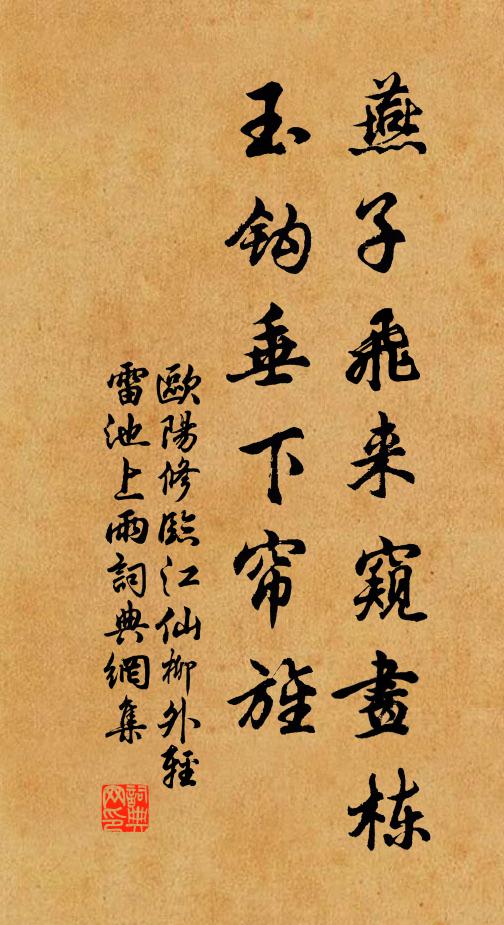 燕子飛来窺畫栋
玉鈎垂下帘旌
歐陽修臨江仙柳外輕
雷池上雨詞典網集
詞典网印